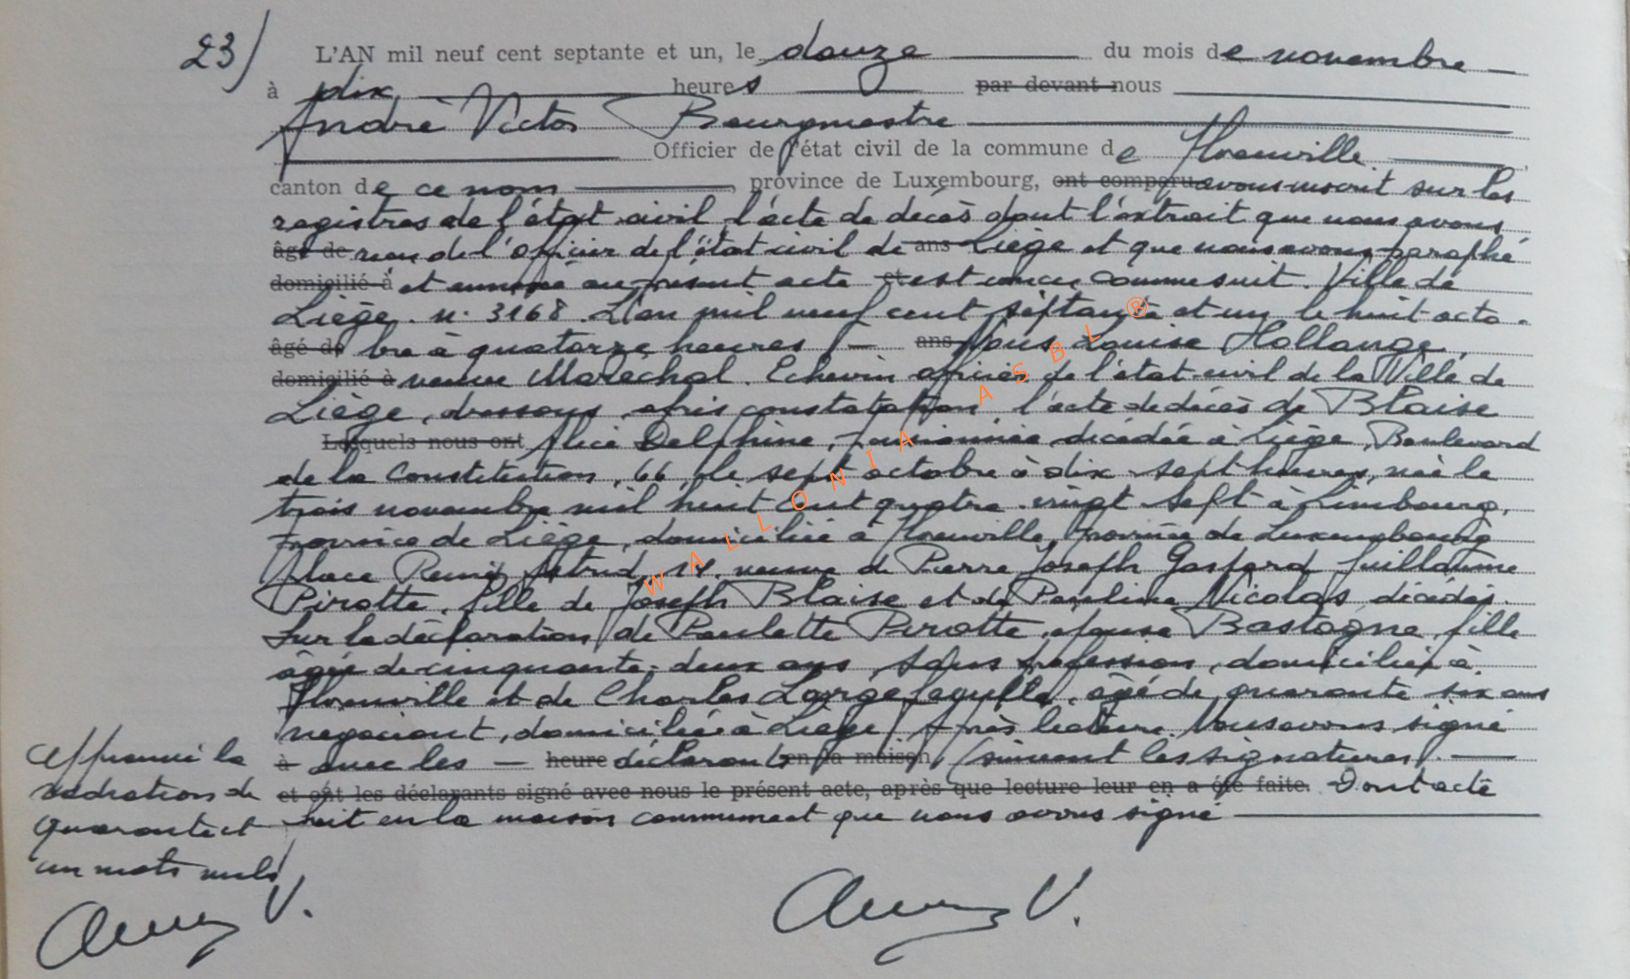 23) L'AN mil neuf cent septante et un, le douze du mois de novembre
à dix heures par devant nous
André Victor Bourgmestre
Officier de l'état civil de la commune de Florenville
canton de ce nom, province de Luxembourg, ont comparu avons inscrit sur les
registres de l'état civil l'acte de décès dont l'extrait que nous avons
âgé de reçu de l'officier de l'état civil de ans Liège et que nous avons paraphé
domicilié à et annexé au présent acte et est conçu comme suit. Ville de
Liège. n. 3168. L'an mil neuf cent septante et un le huit octo-
âgé de bre à quatorze heures ans Nous Louise Hollange,
domicilié à veuve Maréchal. Echevin officier de l'état civil de la Ville de
Liège, dressons après constatation l'acte de décès de Blaise
Lesquels nous ont Alice Delphine, pensionnée décédée à Liège, Boulevard
de la Constitution, 66, le sept octobre à dix sept heures, née le
trois novembre mil huit cent quatre vingt sept à Limbourg,
Province de Liège, domiciliée à Florenville, Province de Luxembourg
Place Reine Astrid, veuve de Pierre Joseph Gaspard Guillaume
Pirotte, fille de Joseph Blaise et de Pauline Nicolas, décédés.
Sur la déclaration de Paulette Pirotte, épouse Bastogne, fille
âgée de cinquante-deux ans, sans profession, domiciliée à
Florenville et de Charles, âgé de quarante six ans
négociant, domicilié à Liège. Après lecture Nous avons signé
à avec les heure déclarants en la maison, (suivent les signatures).
et ont les déclarants signé avec nous le présent acte, après que lecture leur en a été faite. Dont acte
fait en la maison communale et que nous avons signé
Approuvé la
radiation de
quarante et
un mots nuls
V.
V.
WALLONIA ASBL ®